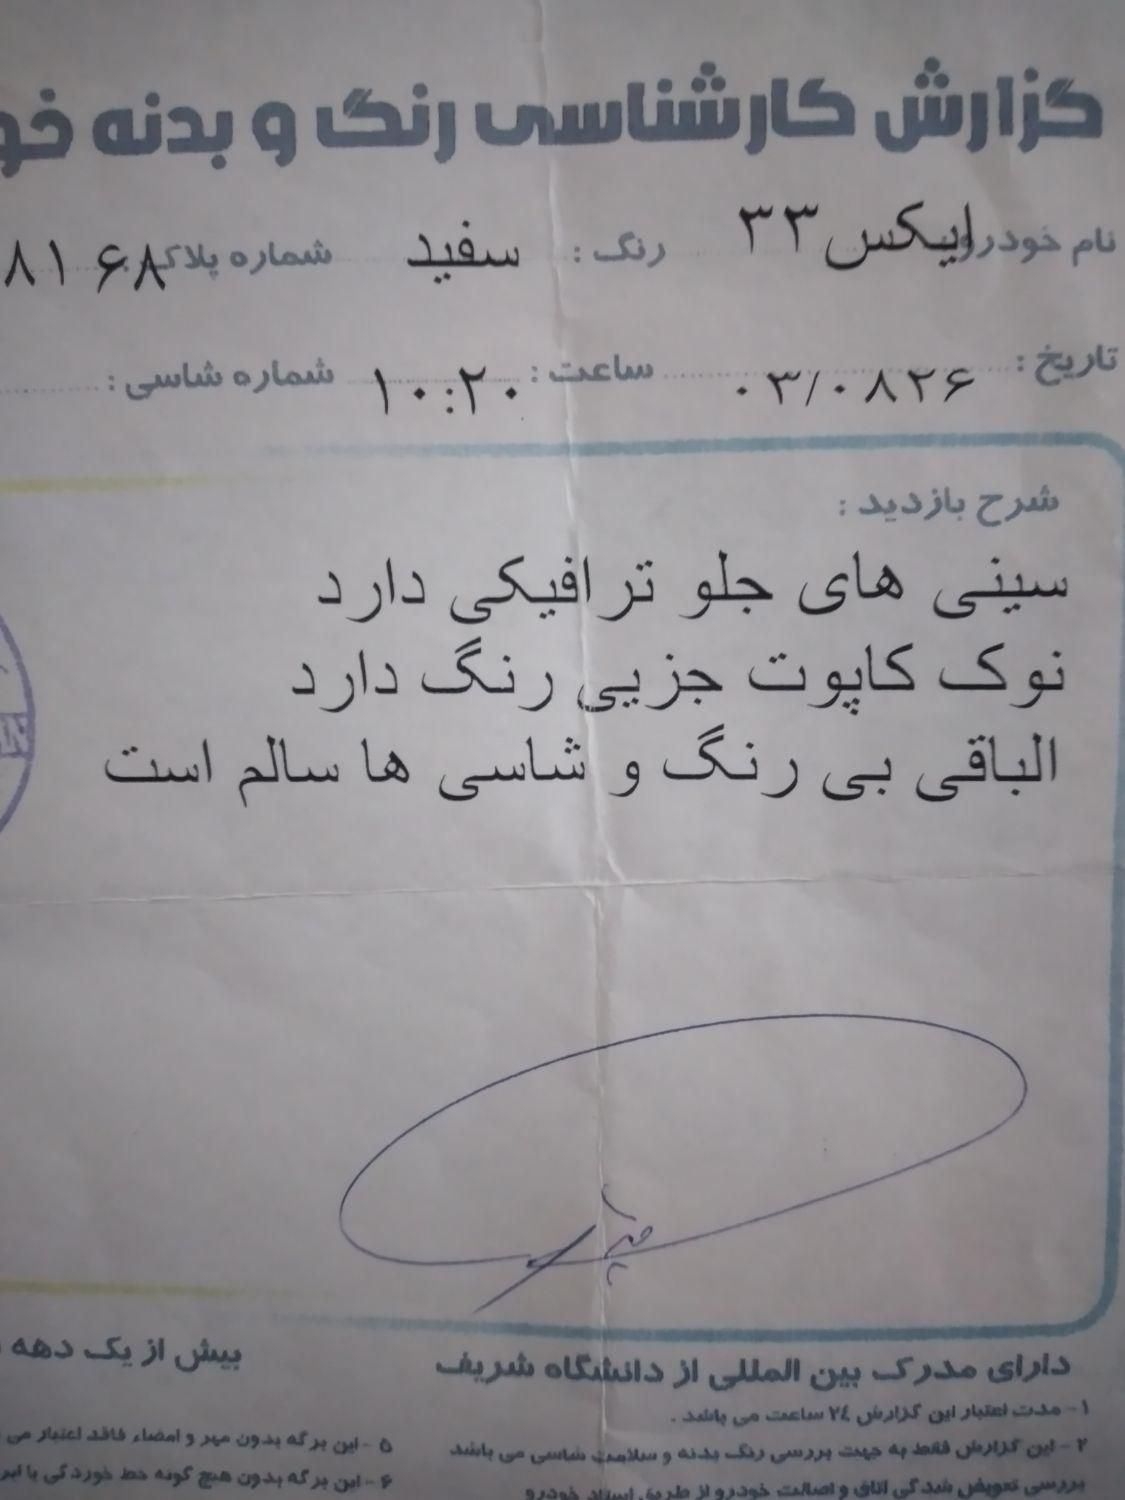 گزارش کارشناسی رنگ و بدنه خو
نام خودرو ایکس ۳۳ رنگ : سفید شماره پلاک ۸۱۶۸
تاریخ : ۰۳/۰۸۲۶ ساعت : ۱۰:۲۰ شماره شاسی :
شرح بازدید :
سینی های جلو ترافیکی دارد
نوک کاپوت جزیی رنگ دارد
الباقی بی رنگ و شاسی ها سالم است
دارای مدرک بین المللی از دانشگاه شریف بیش از یک دهه
۱- مدت اعتبار این گزارش ۲٤ ساعت می باشد .
۲- این گزارش فقط به جهت بررسی رنگ بدنه و سلامت شاسی می باشد
بررسی تعویض شدگی اتاق و اصالت خودرو از طریق اسناد خودرو
۵- این برگه بدون مهر و امضاء فاقد اعتبار می
۶- این برگه بدون هیچ گونه خط خوردگی یا